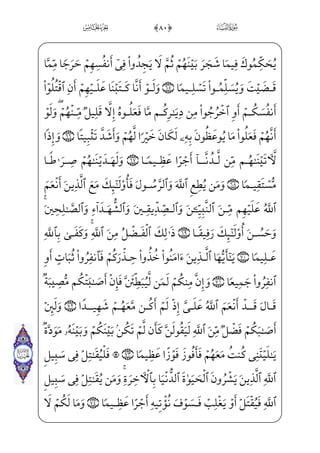 سُورَةُ النِّسَاءِ ﴿٨٠﴾ الجُزْءُ الخَامِسُ
يُحَكِّمُوكَ فِيمَا شَجَرَ بَيْنَهُمْ ثُمَّ لَا يَجِدُوا۟ فِىٓ أَنفُسِهِمْ حَرَجًا مِّمَّا
قَضَيْتَ وَيُسَلِّمُوا۟ تَسْلِيمًا ﴿٦٥﴾ وَلَوْ أَنَّا كَتَبْنَا عَلَيْهِمْ أَنِ ٱقْتُلُوٓا۟
أَنفُسَكُمْ أَوِ ٱخْرُجُوا۟ مِن دِيَٰرِكُم مَّا فَعَلُوهُ إِلَّا قَلِيلٌ مِّنْهُمْ ۖ وَلَوْ
أَنَّهُمْ فَعَلُوا۟ مَا يُوعَظُونَ بِهِۦ لَكَانَ خَيْرًا لَّهُمْ وَأَشَدَّ تَثْبِيتًا ﴿٦٦﴾ وَإِذًا
لَّءَاتَيْنَٰهُم مِّن لَّدُنَّآ أَجْرًا عَظِيمًا ﴿٦٧﴾ وَلَهَدَيْنَٰهُمْ صِرَٰطًا
مُّسْتَقِيمًا ﴿٦٨﴾ وَمَن يُطِعِ ٱللَّهَ وَٱلرَّسُولَ فَأُو۟لَٰٓئِكَ مَعَ ٱلَّذِينَ أَنْعَمَ
ٱللَّهُ عَلَيْهِم مِّنَ ٱلنَّبِيِّۦنَ وَٱلصِّدِّيقِينَ وَٱلشُّهَدَآءِ وَٱلصَّٰلِحِينَ ۚ
وَحَسُنَ أُو۟لَٰٓئِكَ رَفِيقًا ﴿٦٩﴾ ذَٰلِكَ ٱلْفَضْلُ مِنَ ٱللَّهِ ۚ وَكَفَىٰ بِٱللَّهِ
عَلِيمًا ﴿٧٠﴾ يَٰٓأَيُّهَا ٱلَّذِينَ ءَامَنُوا۟ خُذُوا۟ حِذْرَكُمْ فَٱنفِرُوا۟ ثُبَاتٍ أَوِ
ٱنفِرُوا۟ جَمِيعًا ﴿٧١﴾ وَإِنَّ مِنكُمْ لَمَن لَّيُبَطِّئَنَّ فَإِنْ أَصَٰبَتْكُم مُّصِيبَةٌ
قَالَ قَدْ أَنْعَمَ ٱللَّهُ عَلَىَّ إِذْ لَمْ أَكُن مَّعَهُمْ شَهِيدًا ﴿٧٢﴾ وَلَئِنْ
أَصَٰبَكُمْ فَضْلٌ مِّنَ ٱللَّهِ لَيَقُولَنَّ كَأَن لَّمْ تَكُنۢ بَيْنَكُمْ وَبَيْنَهُۥ مَوَدَّةٌ
يَٰلَيْتَنِى كُنتُ مَعَهُمْ فَأَفُوزَ فَوْزًا عَظِيمًا ﴿٧٣﴾ ۞ فَلْيُقَٰتِلْ فِى سَبِيلِ
ٱللَّهِ ٱلَّذِينَ يَشْرُونَ ٱلْحَيَوٰةَ ٱلدُّنْيَا بِٱلْءَاخِرَةِ ۚ وَمَن يُقَٰتِلْ فِى سَبِيلِ
ٱللَّهِ فَيُقْتَلْ أَوْ يَغْلِبْ فَسَوْفَ نُؤْتِيهِ أَجْرًا عَظِيمًا ﴿٧٤﴾ وَمَا لَكُمْ لَا